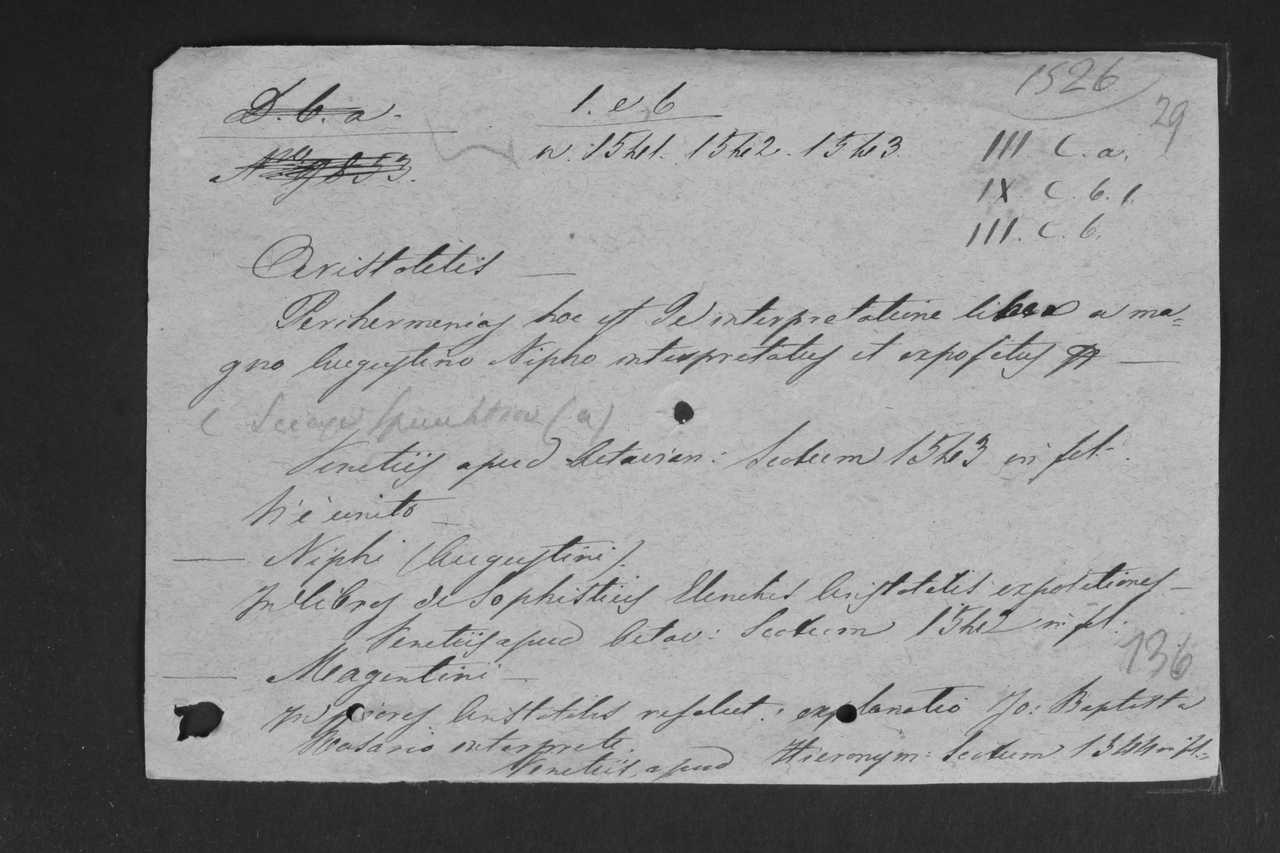 D. b. a.
1. e. b
1526
29
N° 9853.
n. 1541. 1542. 1543.
III C. a.
IX C. b. 1.
III. C. b.
Aristotelis —
Perihermenias hoc est De interpretatione liber a ma=
gno Augustino Nipho interpretatus et expositus —
(a)
Venetiis apud Octavian: Scotum 1543 in fol.
Vi è unito
— Niphi (Augustini).
In libros de Sophisticis Elenchis Aristotelis expositiones —
Venetiis apud Octav: Scotum 1542 in fol.
136
— Magentini —
In priores Aristotelis resolut.: explanatio Jo: Baptista
Rasario interprete.
Venetiis, apud Hieronym: Scotum 1544 in fol=